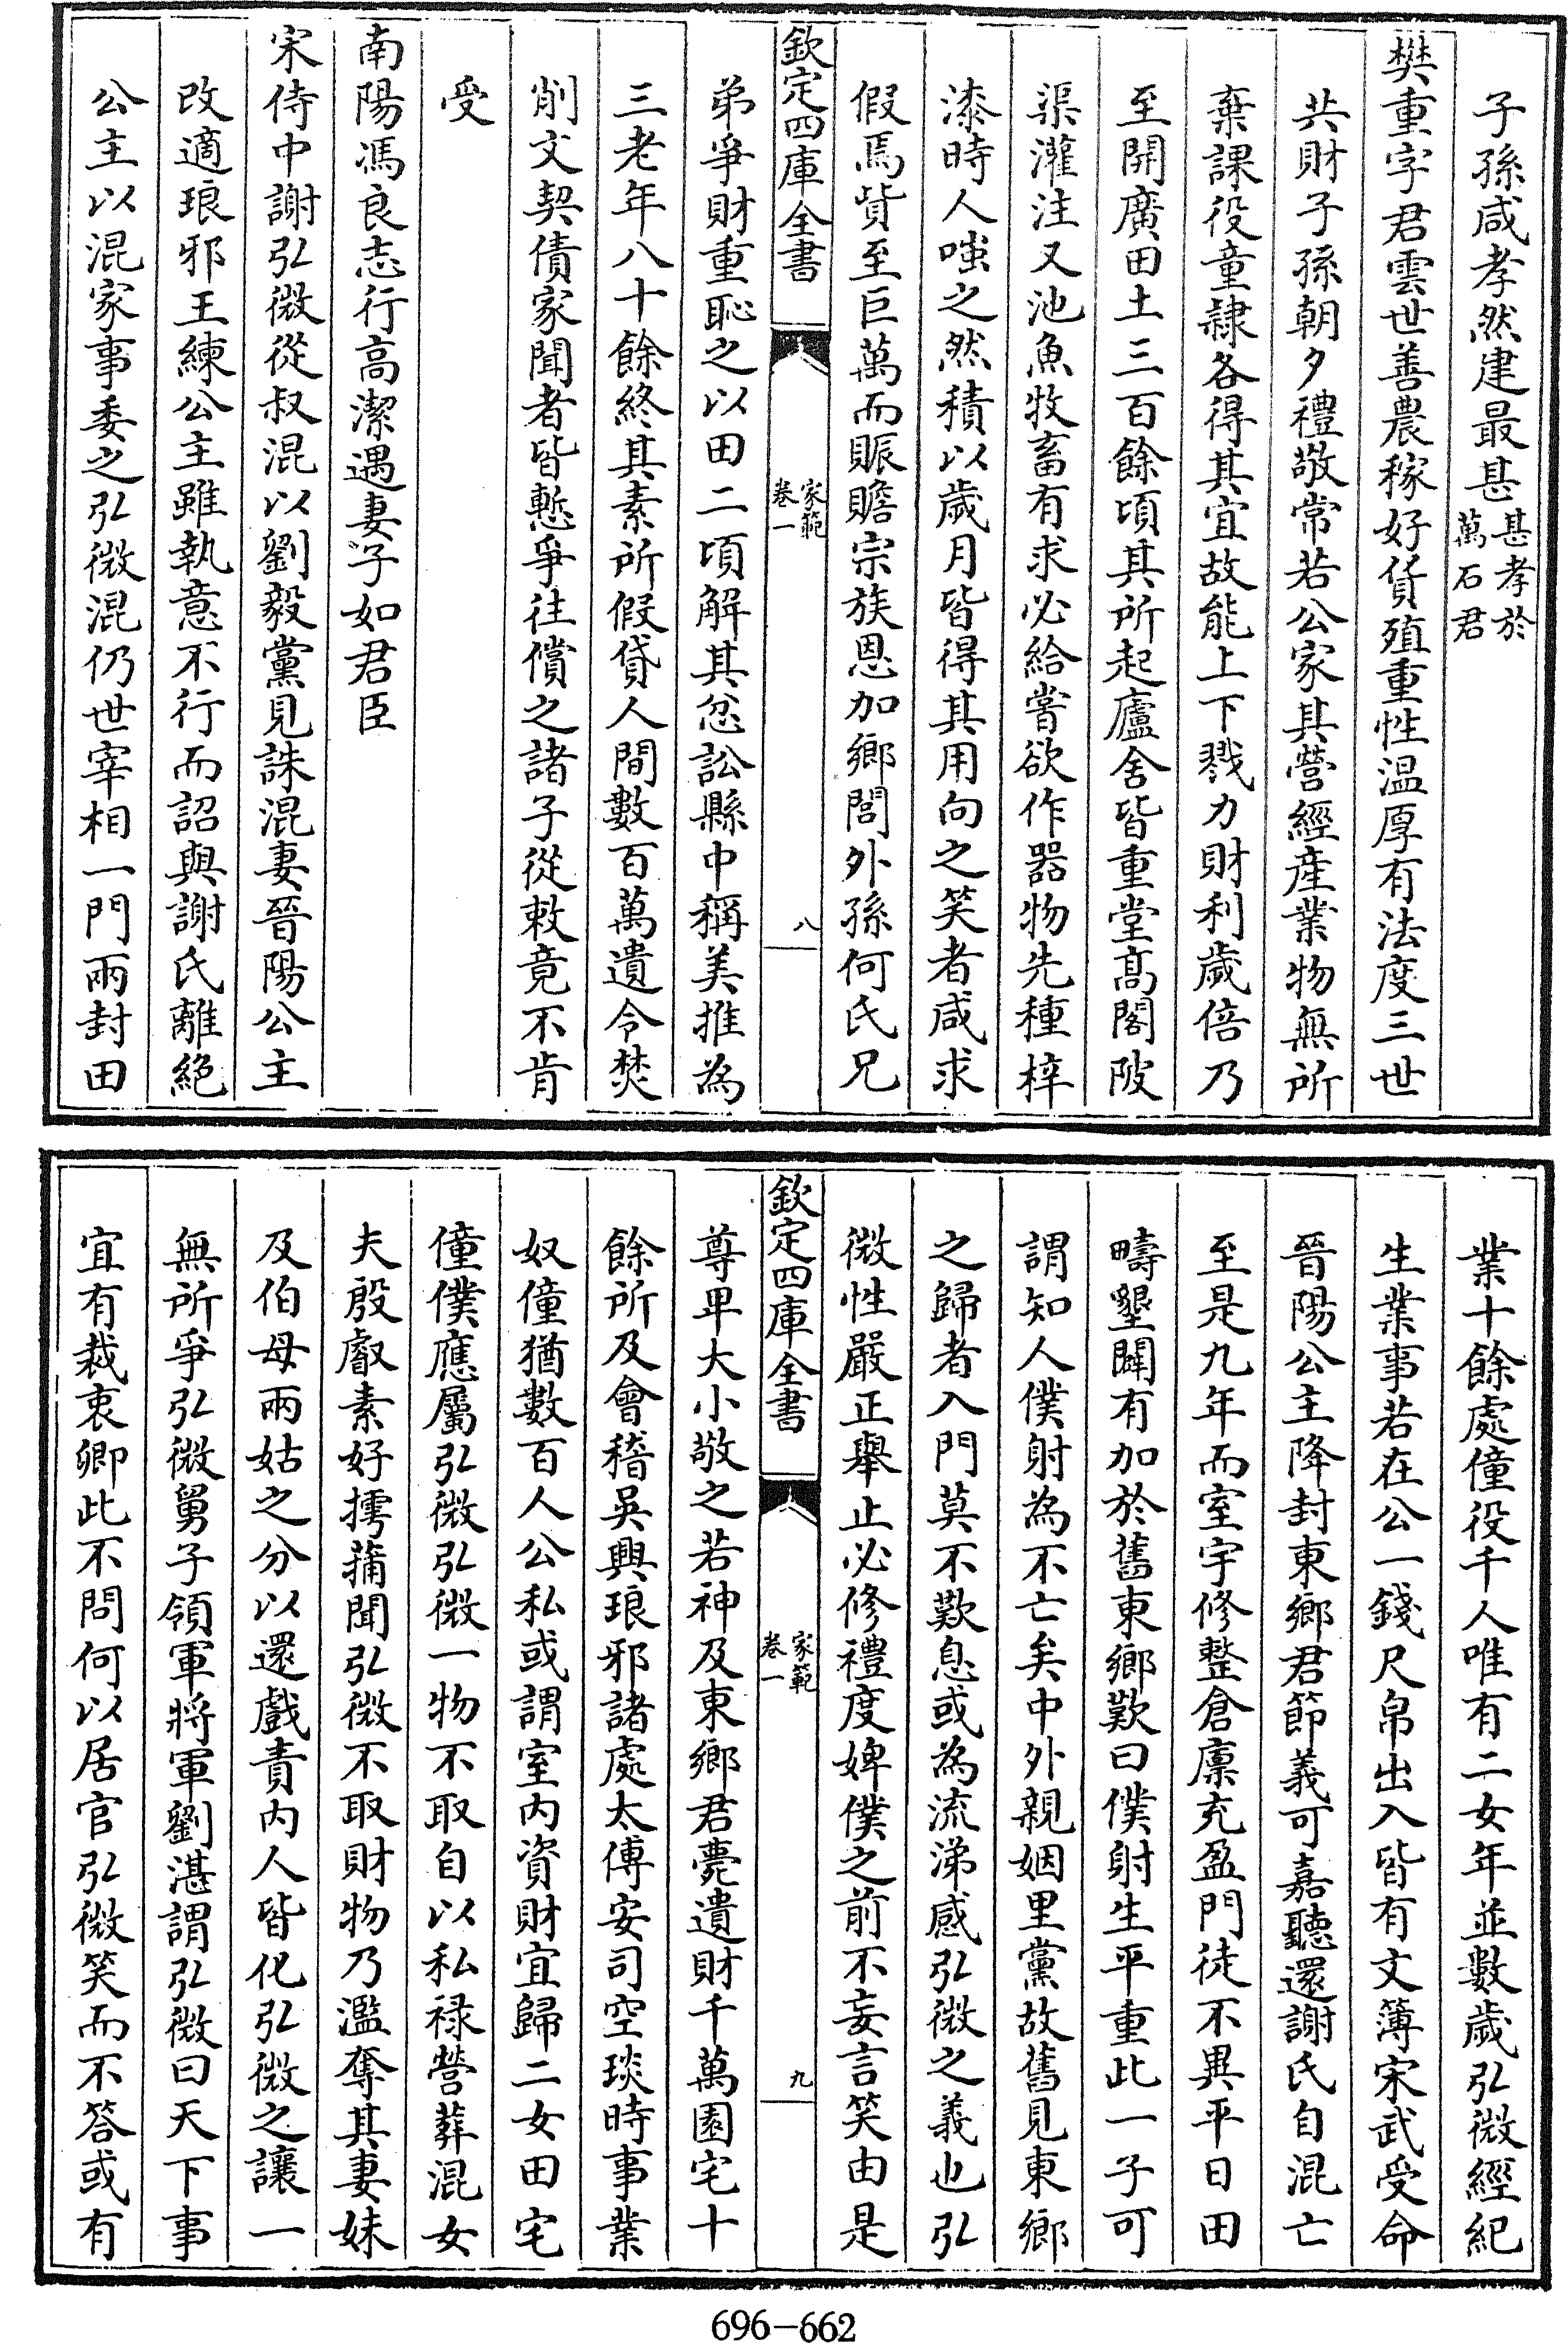 子孫咸孝然建最甚甚孝於萬石君
樊重字君雲世善農稼好貨殖重性温厚有法度三世
共財子孫朝夕禮敬常若公家其營經産業物無所
棄課役童隸各得其宜故能上下戮力財利歲倍乃
至開廣田土三百餘頃其所起廬舍皆重堂髙閣陂
渠灌注又池魚牧畜有求必給嘗欲作器物先種梓
漆時人嗤之然積以歲月皆得其用向之笑者咸求
假焉貲至巨萬而賑贍宗族恩加鄉閭外孫何氏兄
欽定四庫全書
家範
卷一
八
弟爭財重恥之以田二頃解其忿訟縣中稱美推為
三老年八十餘終其素所假貸人間數百萬遺令焚
削文契債家聞者皆慙爭往償之諸子從敕竟不肯
受
南陽馮良志行高潔遇妻子如君臣
宋侍中謝弘微從叔混以劉毅黨見誅混妻晉陽公主
改適琅邪王練公主雖執意不行而詔與謝氏離絶
公主以混家事委之弘微混仍世宰相一門兩封田
業十餘處僮役千人唯有二女年並數歲弘微經紀
生業事若在公一錢尺帛出入皆有文簿宋武受命
晉陽公主降封東鄉君節義可嘉聽還謝氏自混亡
至是九年而室宇修整倉廩充盈門徒不異平日田
疇墾闢有加於舊東鄉歎曰僕射生平重此一子可
謂知人僕射為不亡矣中外親姻里黨故舊見東鄉
之歸者入門莫不歎息或為流涕感弘微之義也弘
微性嚴正舉止必修禮度婢僕之前不妄言笑由是
欽定四庫全書
家範
卷一
九
尊卑大小敬之若神及東鄉君薨遺財千萬園宅十
餘所及會稽吳興琅邪諸處太傅安司空琰時事業
奴僮猶數百人公私或謂室内資財宜歸二女田宅
僮僕應屬弘微弘微一物不取自以私禄營葬混女
夫殷叡素好摴蒱聞弘微不取財物乃濫奪其妻妹
及伯母兩姑之分以還戲責内人皆化弘微之讓一
無所爭弘微舅子領軍將軍劉湛謂弘微曰天下事
宜有裁衷卿此不問何以居官弘微笑而不答或有
696-662